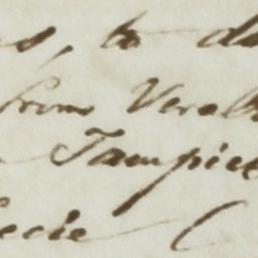 s, to d
from Vera
Tampic
ecie (